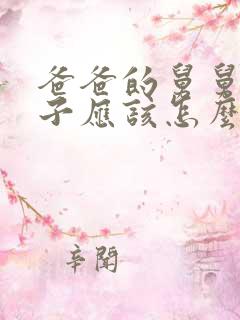 爸爸的舅舅
子應該怎麼
辛聞